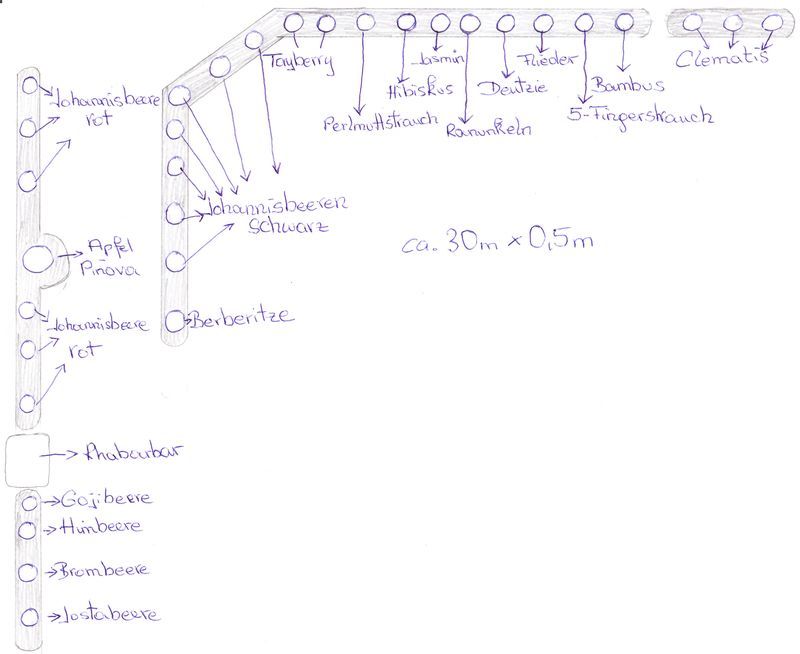 Tayberry
Perlmuttstrauch
Hibiskus
Jasmin
Ranunkeln
Deutzie
Flieder
5-Fingerstrauch
Bambus
Clematis
Johannisbeere
rot
Johannisbeeren
Schwarz
ca. 30m x 0,5m
Apfel
Pinova
Johannisbeere
rot
Berberitze
Rhabarbar
Gojibeere
Himbeere
Brombeere
Jostabeere